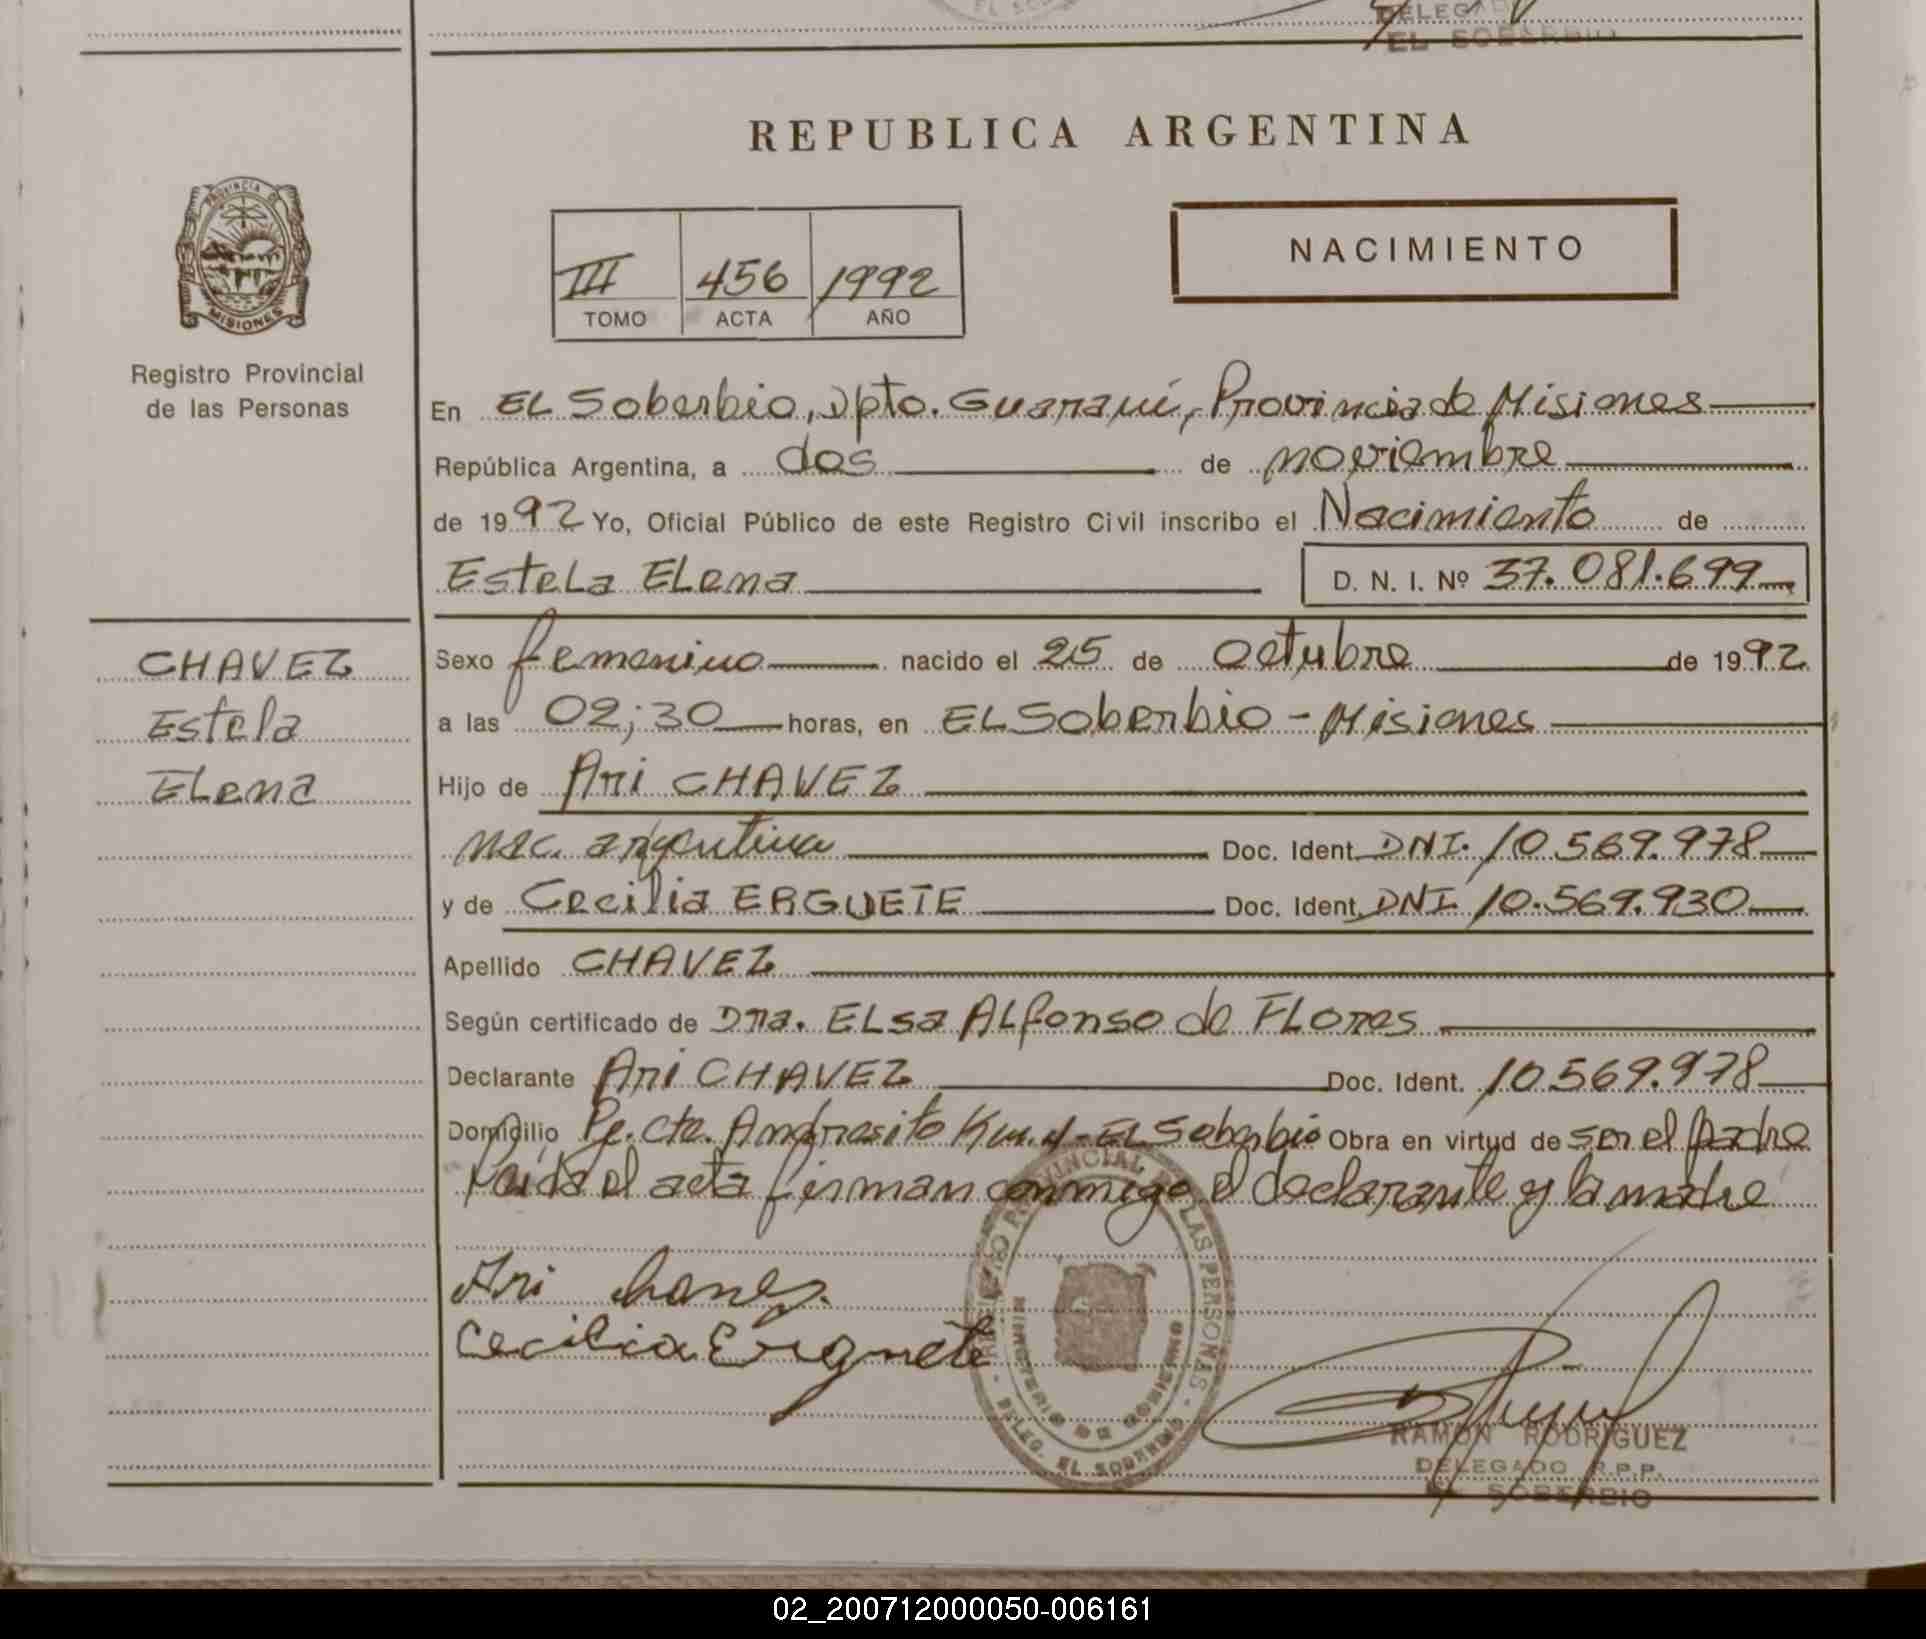 DELEGAD
EL SOBERBIO
REPUBLICA ARGENTINA
PROVINCIA DE
MISIONES
Registro Provincial
de las Personas
III 456 1992
TOMO ACTA AÑO
NACIMIENTO
En EL Soberbio, Dpto. Guaraní, Provincia de Misiones
República Argentina, a dos de noviembre
de 1992 Yo, Oficial Público de este Registro Civil inscribo el Nacimiento de
Estela Elena D. N. I. Nº 37.081.699
CHAVEZ
Estela
Elena
Sexo femenino nacido el 25 de Octubre de 1992
a las 02;30 horas, en EL Soberbio - Misiones
Hijo de Ari CHAVEZ
nac. argentina Doc. Ident. DNI. 10.569.978
y de Cecilia ERGUETE Doc. Ident. DNI. 10.569.930
Apellido CHAVEZ
Según certificado de Dra. ELsa ALfonso de FLores
Declarante Ari CHAVEZ Doc. Ident. 10.569.978
Domicilio Pje. Cte. Andresito Km. 4 - EL Soberbio Obra en virtud de ser el padre
Leída el acta firman conmigo el declarante y la madre
Ari Chavez
Cecilia Erguete
REGISTRO PROVINCIAL DE LAS PERSONAS
MINISTERIO DE GOBIERNO
DELEG. EL SOBERBIO
RAMON RODRIGUEZ
DELEGADO R.P.P.
EL SOBERBIO
02_200712000050-006161